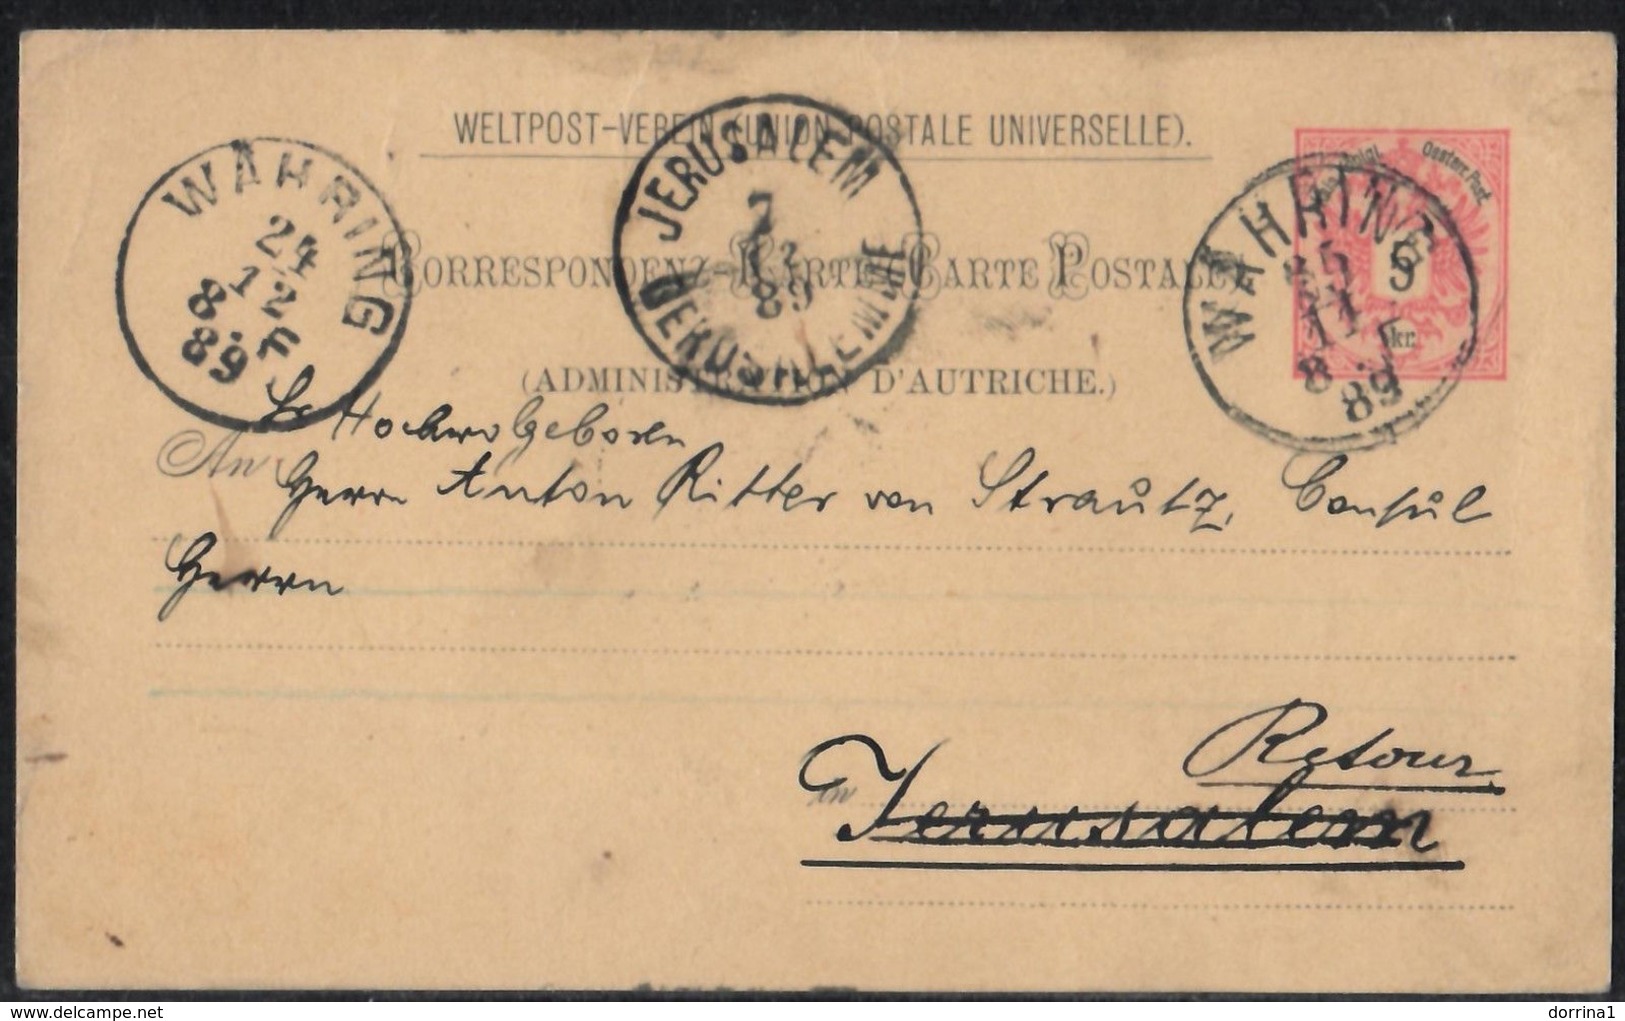 WELTPOST-VEREIN (UNION POSTALE UNIVERSELLE).
WÄHRING
24
12
8 89
JERUSALEM
7
12
89
GERUSALEMME
WÄHRING
25
11
8 89
Oesterr. Post.
5
kr.
CORRESPONDENZ-KARTE CARTE POSTALE
(ADMINISTRATION D'AUTRICHE.)
Sr Hochwolgeboren
An Herrn Anton Ritter von Strautz, Consul
Herrn
Retour
in Jerusalem
www.delcampe.net
dorrina1